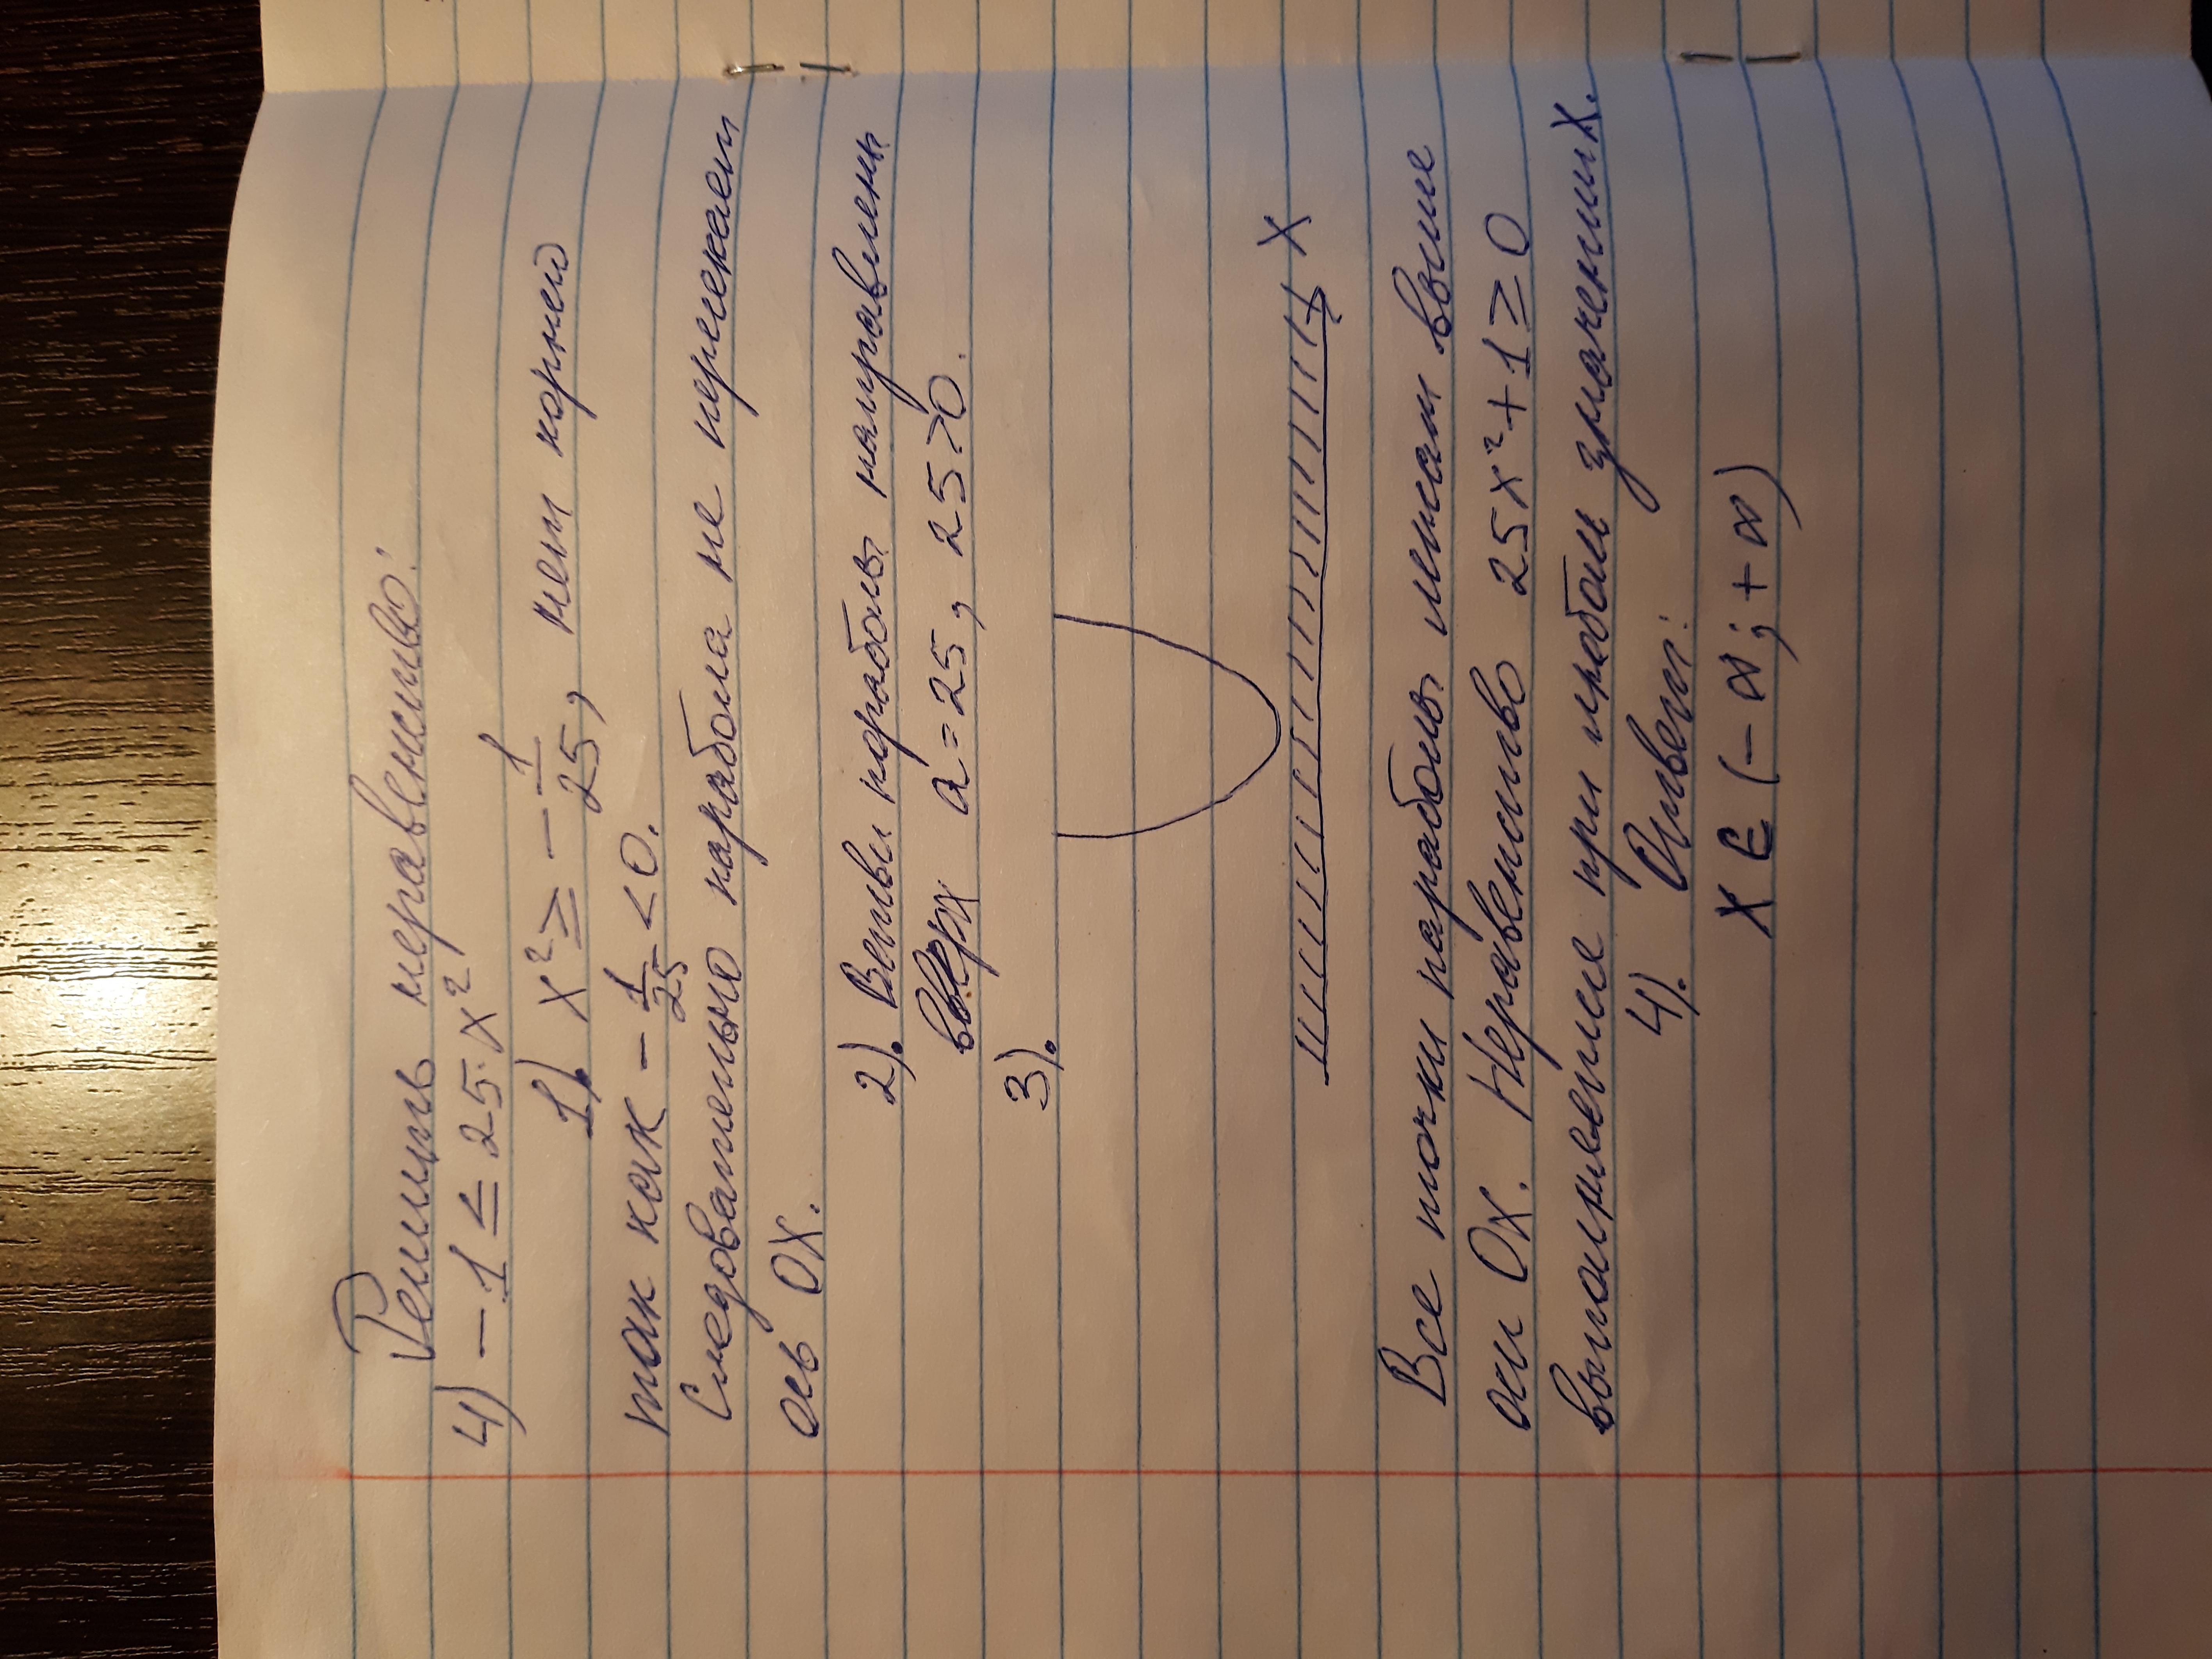 Решить неравенство:
4) -1 ≤ 25·x²
1). x² ≥ -1/25, нет корней
так как -1/25 < 0.
Следовательно парабола не пересекает
ось Ox.
2). Ветви параболы направлены
вверх a = 25, 25 > 0.
3).
x
Все точки параболы лежат выше
оси Ox. Неравенство 25x² + 1 ≥ 0
выполняется при любом значении x.
4). Ответ:
x ∈ (-∞; +∞)